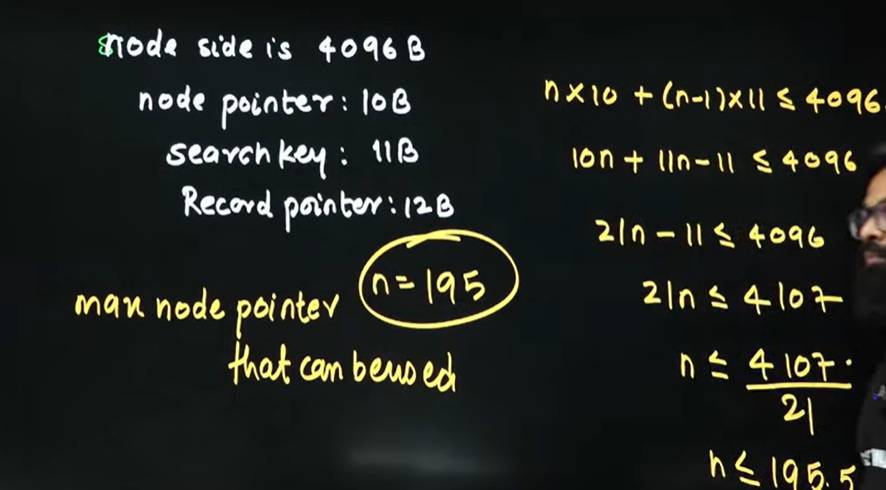 node side is 4096B
node pointer: 10B
search key: 11B
Record pointer: 12B
max node pointer n=195
that can be used
n×10 + (n-1)×11 ≤ 4096
10n + 11n-11 ≤ 4096
21n - 11 ≤ 4096
21n ≤ 4107
n ≤ 4107
21
n ≤ 195.5